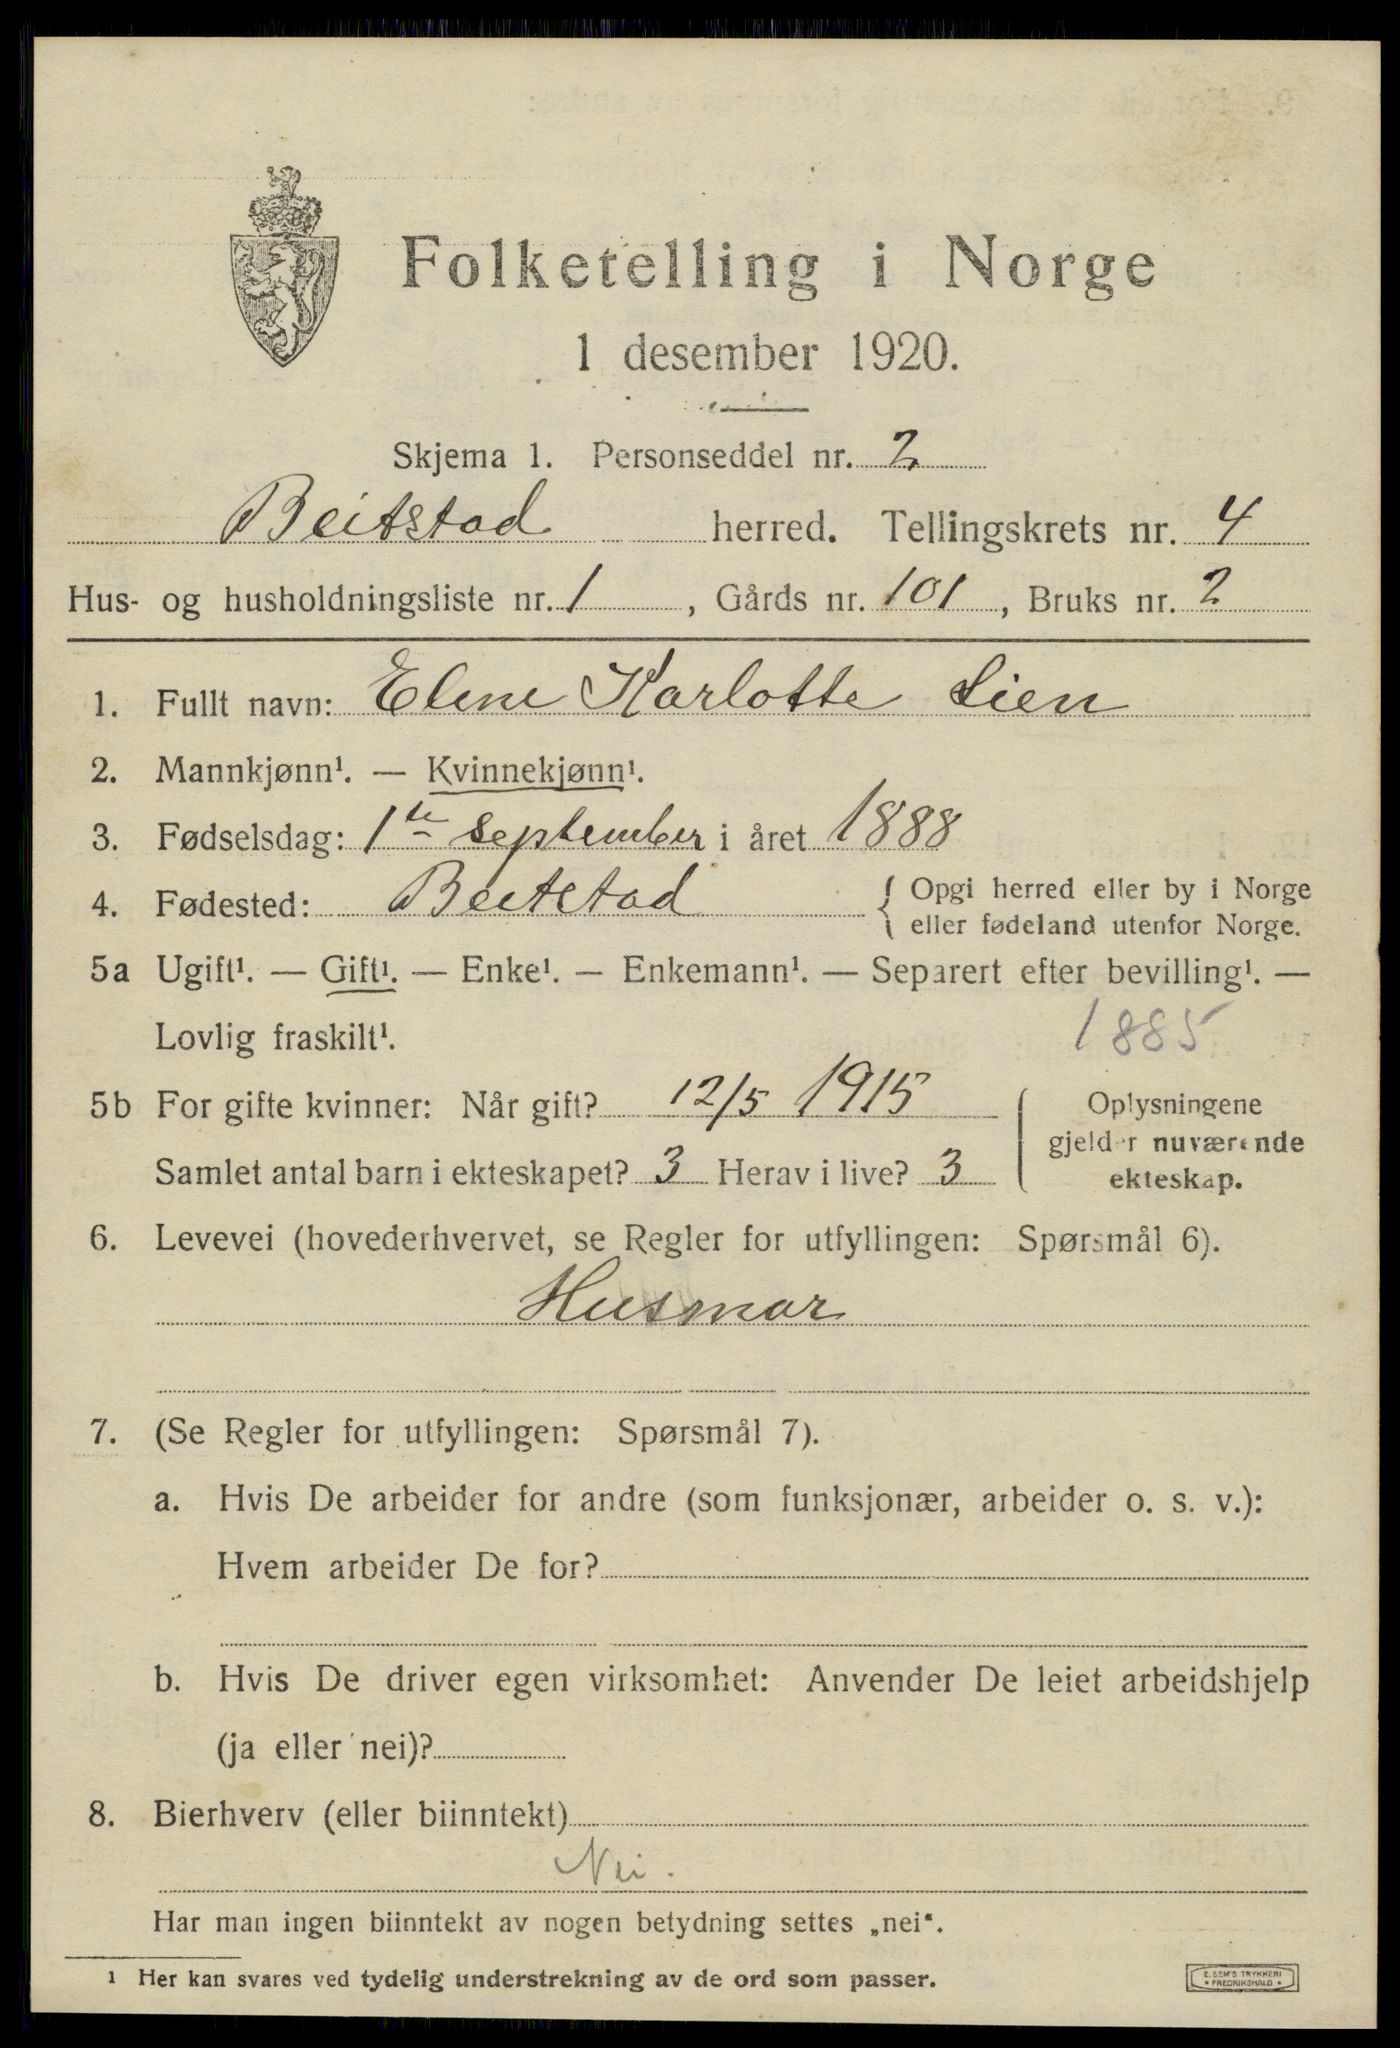 Folketelling i Norge
1 desember 1920.
Skjema 1. Personseddel nr. 2
Beitstad herred. Tellingskrets nr. 4
Hus- og husholdningsliste nr. 1, Gårds nr. 101, Bruks nr. 2
1. Fullt navn: Elene Karlotte Lien
2. Mannkjønn¹. — Kvinnekjønn¹.
3. Fødselsdag: 1te september i året 1888
4. Fødested: Beitstad { Opgi herred eller by i Norge
eller fødeland utenfor Norge.
5a Ugift¹. — Gift¹. — Enke¹. — Enkemann¹. — Separert efter bevilling¹. —
Lovlig fraskilt¹. 1885
5b For gifte kvinner: Når gift? 12/5 1915 { Oplysningene
gjelder nuværende
Samlet antal barn i ekteskapet? 3 Herav i live? 3 ekteskap.
6. Levevei (hovederhvervet, se Regler for utfyllingen: Spørsmål 6).
Husmor
7. (Se Regler for utfyllingen: Spørsmål 7).
a. Hvis De arbeider for andre (som funksjonær, arbeider o. s. v.):
Hvem arbeider De for?
b. Hvis De driver egen virksomhet: Anvender De leiet arbeidshjelp
(ja eller nei)?
8. Bierhverv (eller biinntekt)
Nei.
Har man ingen biinntekt av nogen betydning settes „nei“.
1 Her kan svares ved tydelig understrekning av de ord som passer.
E. SEM'S TRYKKERI
• FREDRIKSHALD •